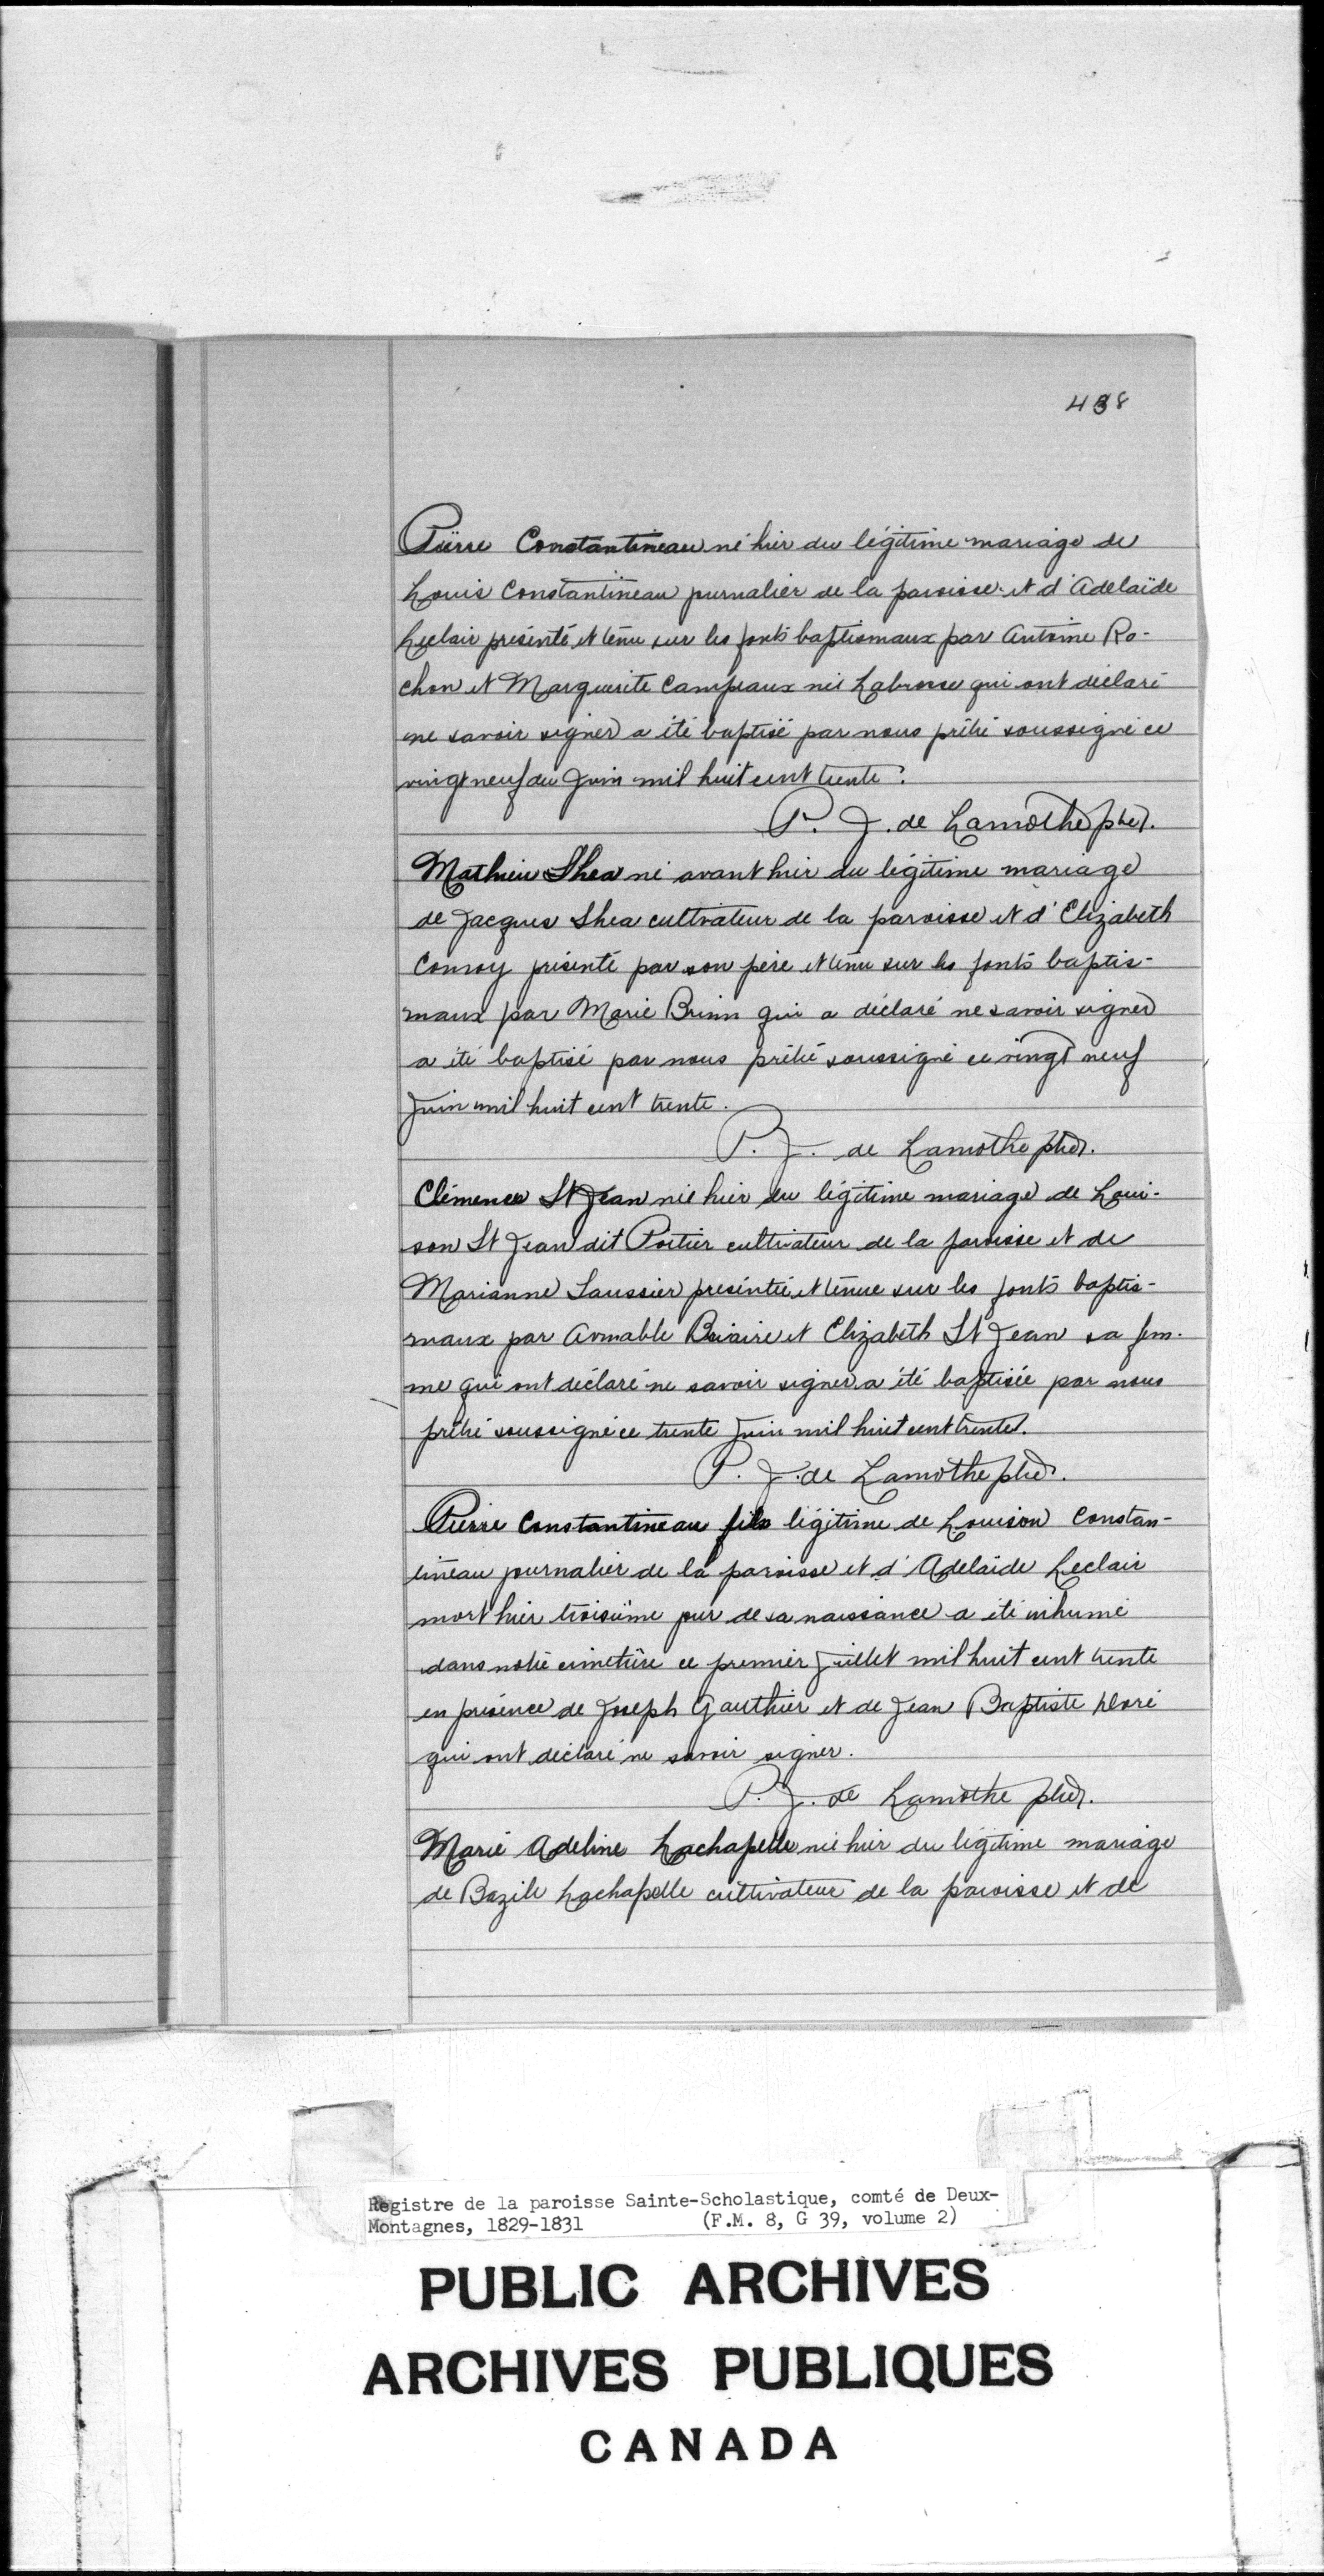 438
Pierre Constantineau né hier du légitime mariage de
Louis Constantineau journalier de la paroisse et d'Adelaïde
Leclair présenté et tenu sur les fonts baptismaux par Antoine Ro-
chon et Marguerite Campeaux née Labrosse qui ont déclaré
ne savoir signer a été baptisé par nous prêtre soussigné ce
vingt neuf du Juin mil huit cent trente.
P. J. de Lamothe ptre.
Mathieu Shea né avant hier du légitime mariage
de Jacques Shea cultivateur de la paroisse et d'Elizabeth
Conroy présenté par son père et tenu sur les fonts baptis-
maux par Marie Brinn qui a déclaré ne savoir signer
a été baptisé par nous prêtre soussigné ce vingt neuf
Juin mil huit cent trente.
P. J. de Lamothe ptre.
Clémence St Jean née hier du légitime mariage de Loui-
son St Jean dit Poitier cultivateur de la paroisse et de
Marianne Saussier presentée et tenue sur les fonts baptis-
maux par Aimable et Elizabeth St Jean sa fem-
me qui ont déclaré ne savoir signer a été baptisée par nous
prêtre soussigné ce trente Juin mil huit cent trente.
P. J. de Lamothe ptre.
Pierre Constantineau fils légitime de Louison Constan-
tineau journalier de la paroisse et d'Adelaide Leclair
mort hier troisième jour de sa naissance a été inhumé
dans notre cimetière ce premier Juillet mil huit cent trente
en présence de Joseph Gauthier et de Jean Baptiste Doré
qui ont déclaré ne savoir signer.
P. J. de Lamothe ptre.
Marie Adeline Lachapelle née hier du légitime mariage
de Bazile Lachapelle cultivateur de la paroisse et de
Registre de la paroisse Sainte-Scholastique, comté de Deux-
Montagnes, 1829-1831 (F.M. 8, G 39, volume 2)
PUBLIC ARCHIVES
ARCHIVES PUBLIQUES
CANADA